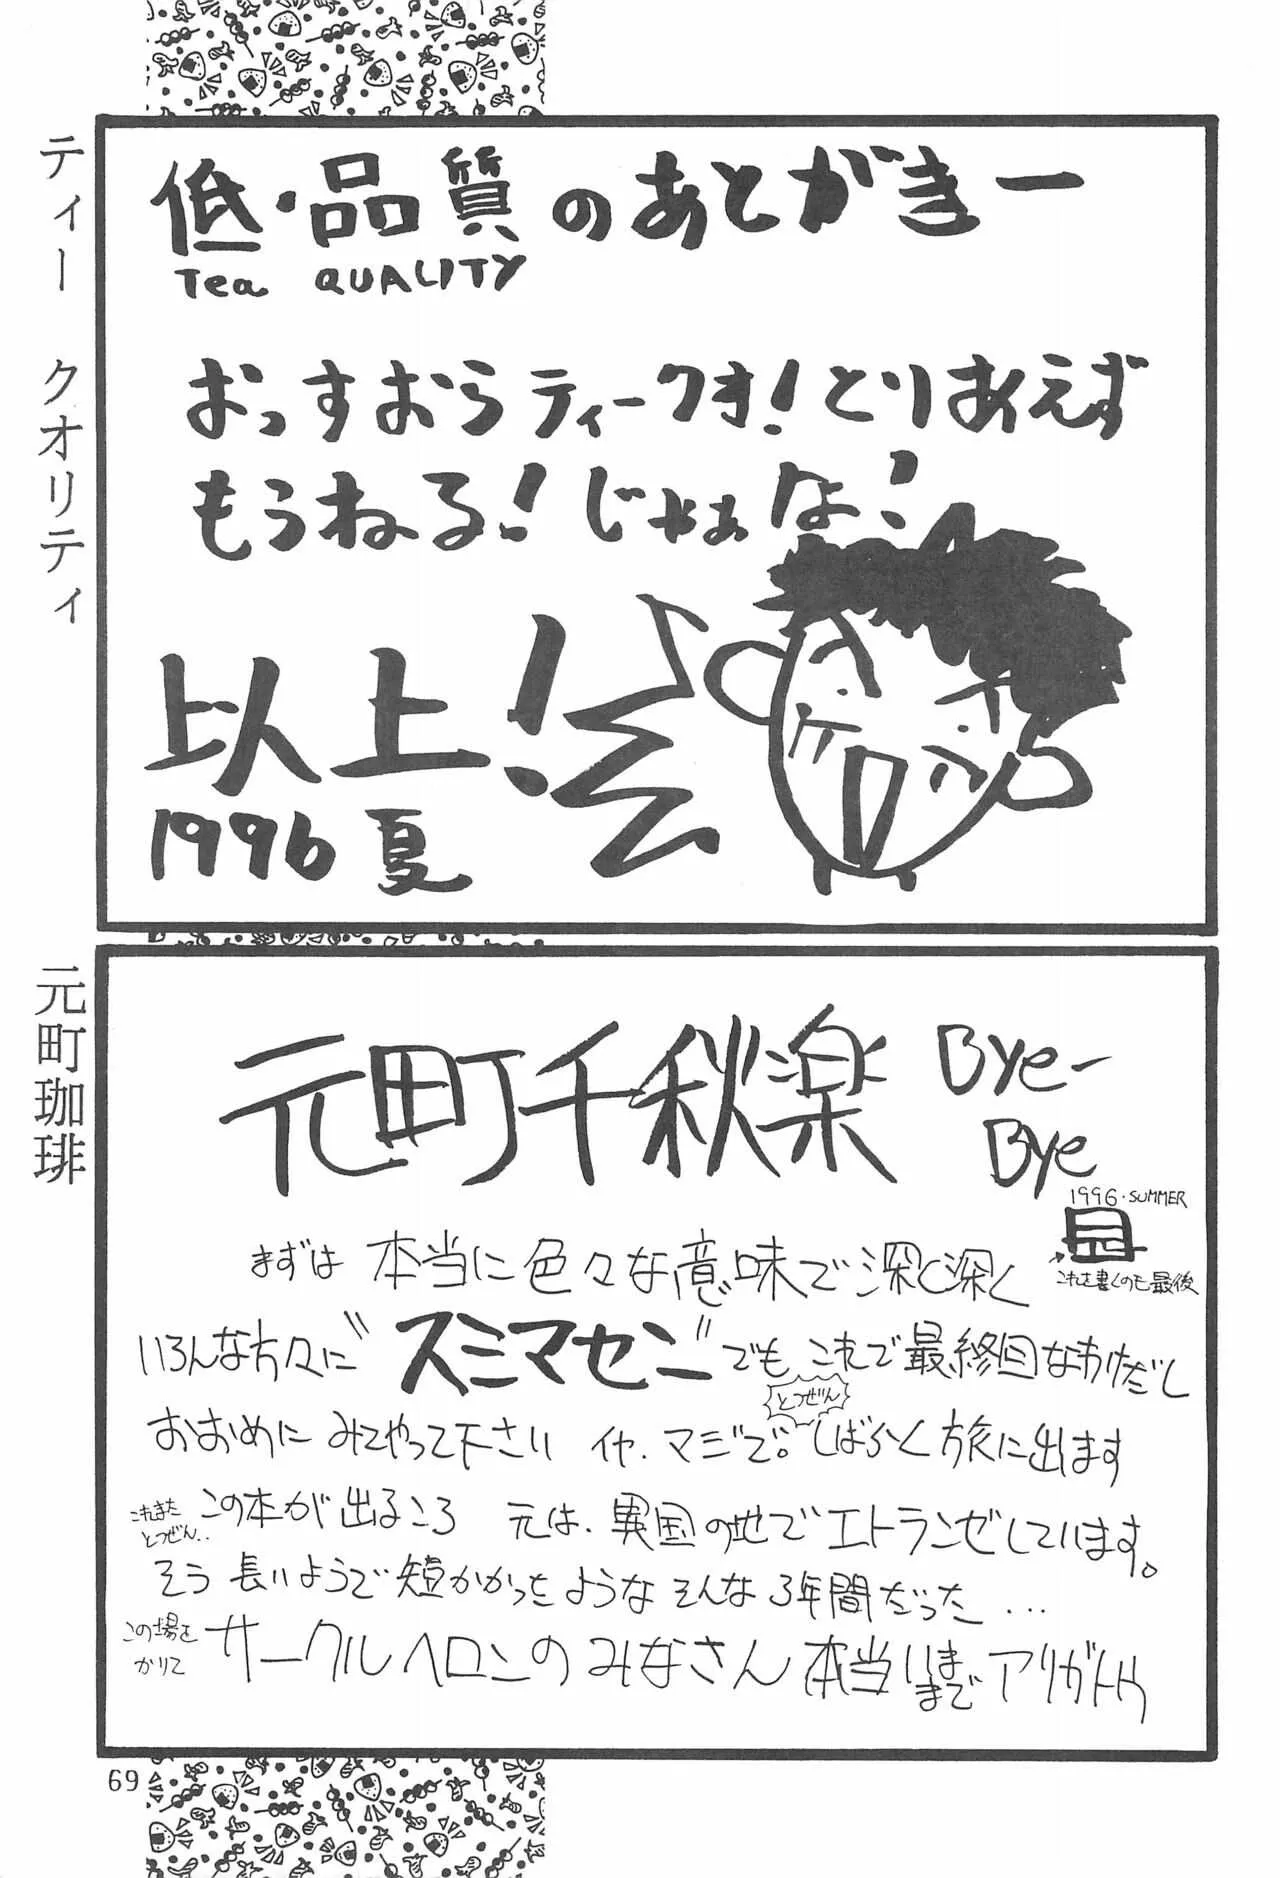 ティー クオリティ
低・品質のあとがきー
Tea QUALITY
おっすおらティークオ!とりあえず
もうねる!じゃあな!
以上!
1996 夏
元町珈琲
元町千秋楽 Bye-
Bye
1996・SUMMER
これを書くのも最後
まずは 本当に色々な意味で深く深く
いろんな方々に"スミマセン"でも これで最終回なわけだし
おおめに みてやって下さい イヤ、マジで。とつぜんしばらく旅に出ます
これまた
とつぜん..
この本が出るころ 元は、異国の地でエトランゼしています。
そう 長いようで短かかったような そんな 3年間だった...
この場を
かりて
サークルヘロンの みなさん 本当いままで アリガトウ
69